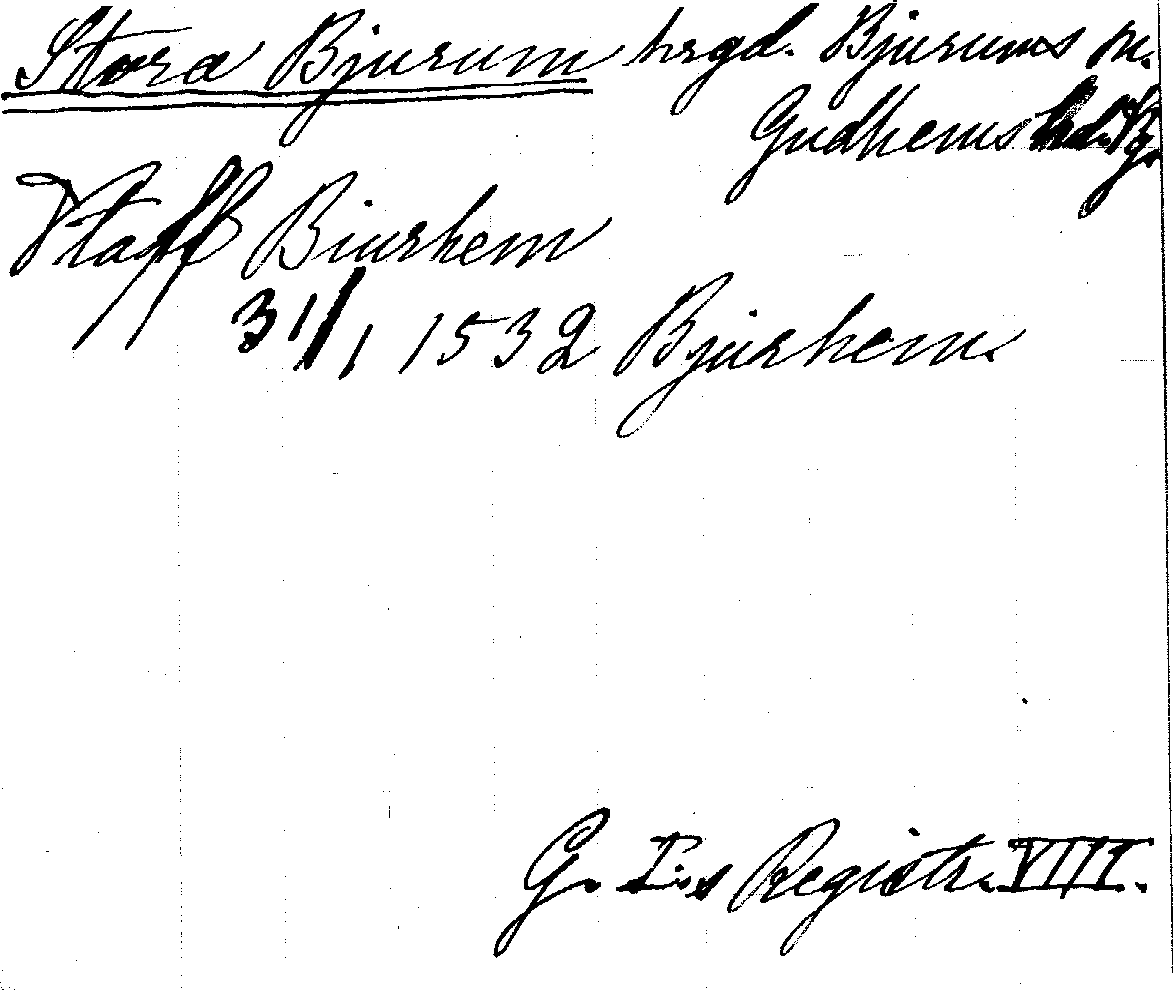 Stora Bjurum hrgd. Bjurums sn.
Gudhems hd. Vg.
Staff Biurhem
31/1 1532 Bjurhem.
G. I:s Registr. VIII.